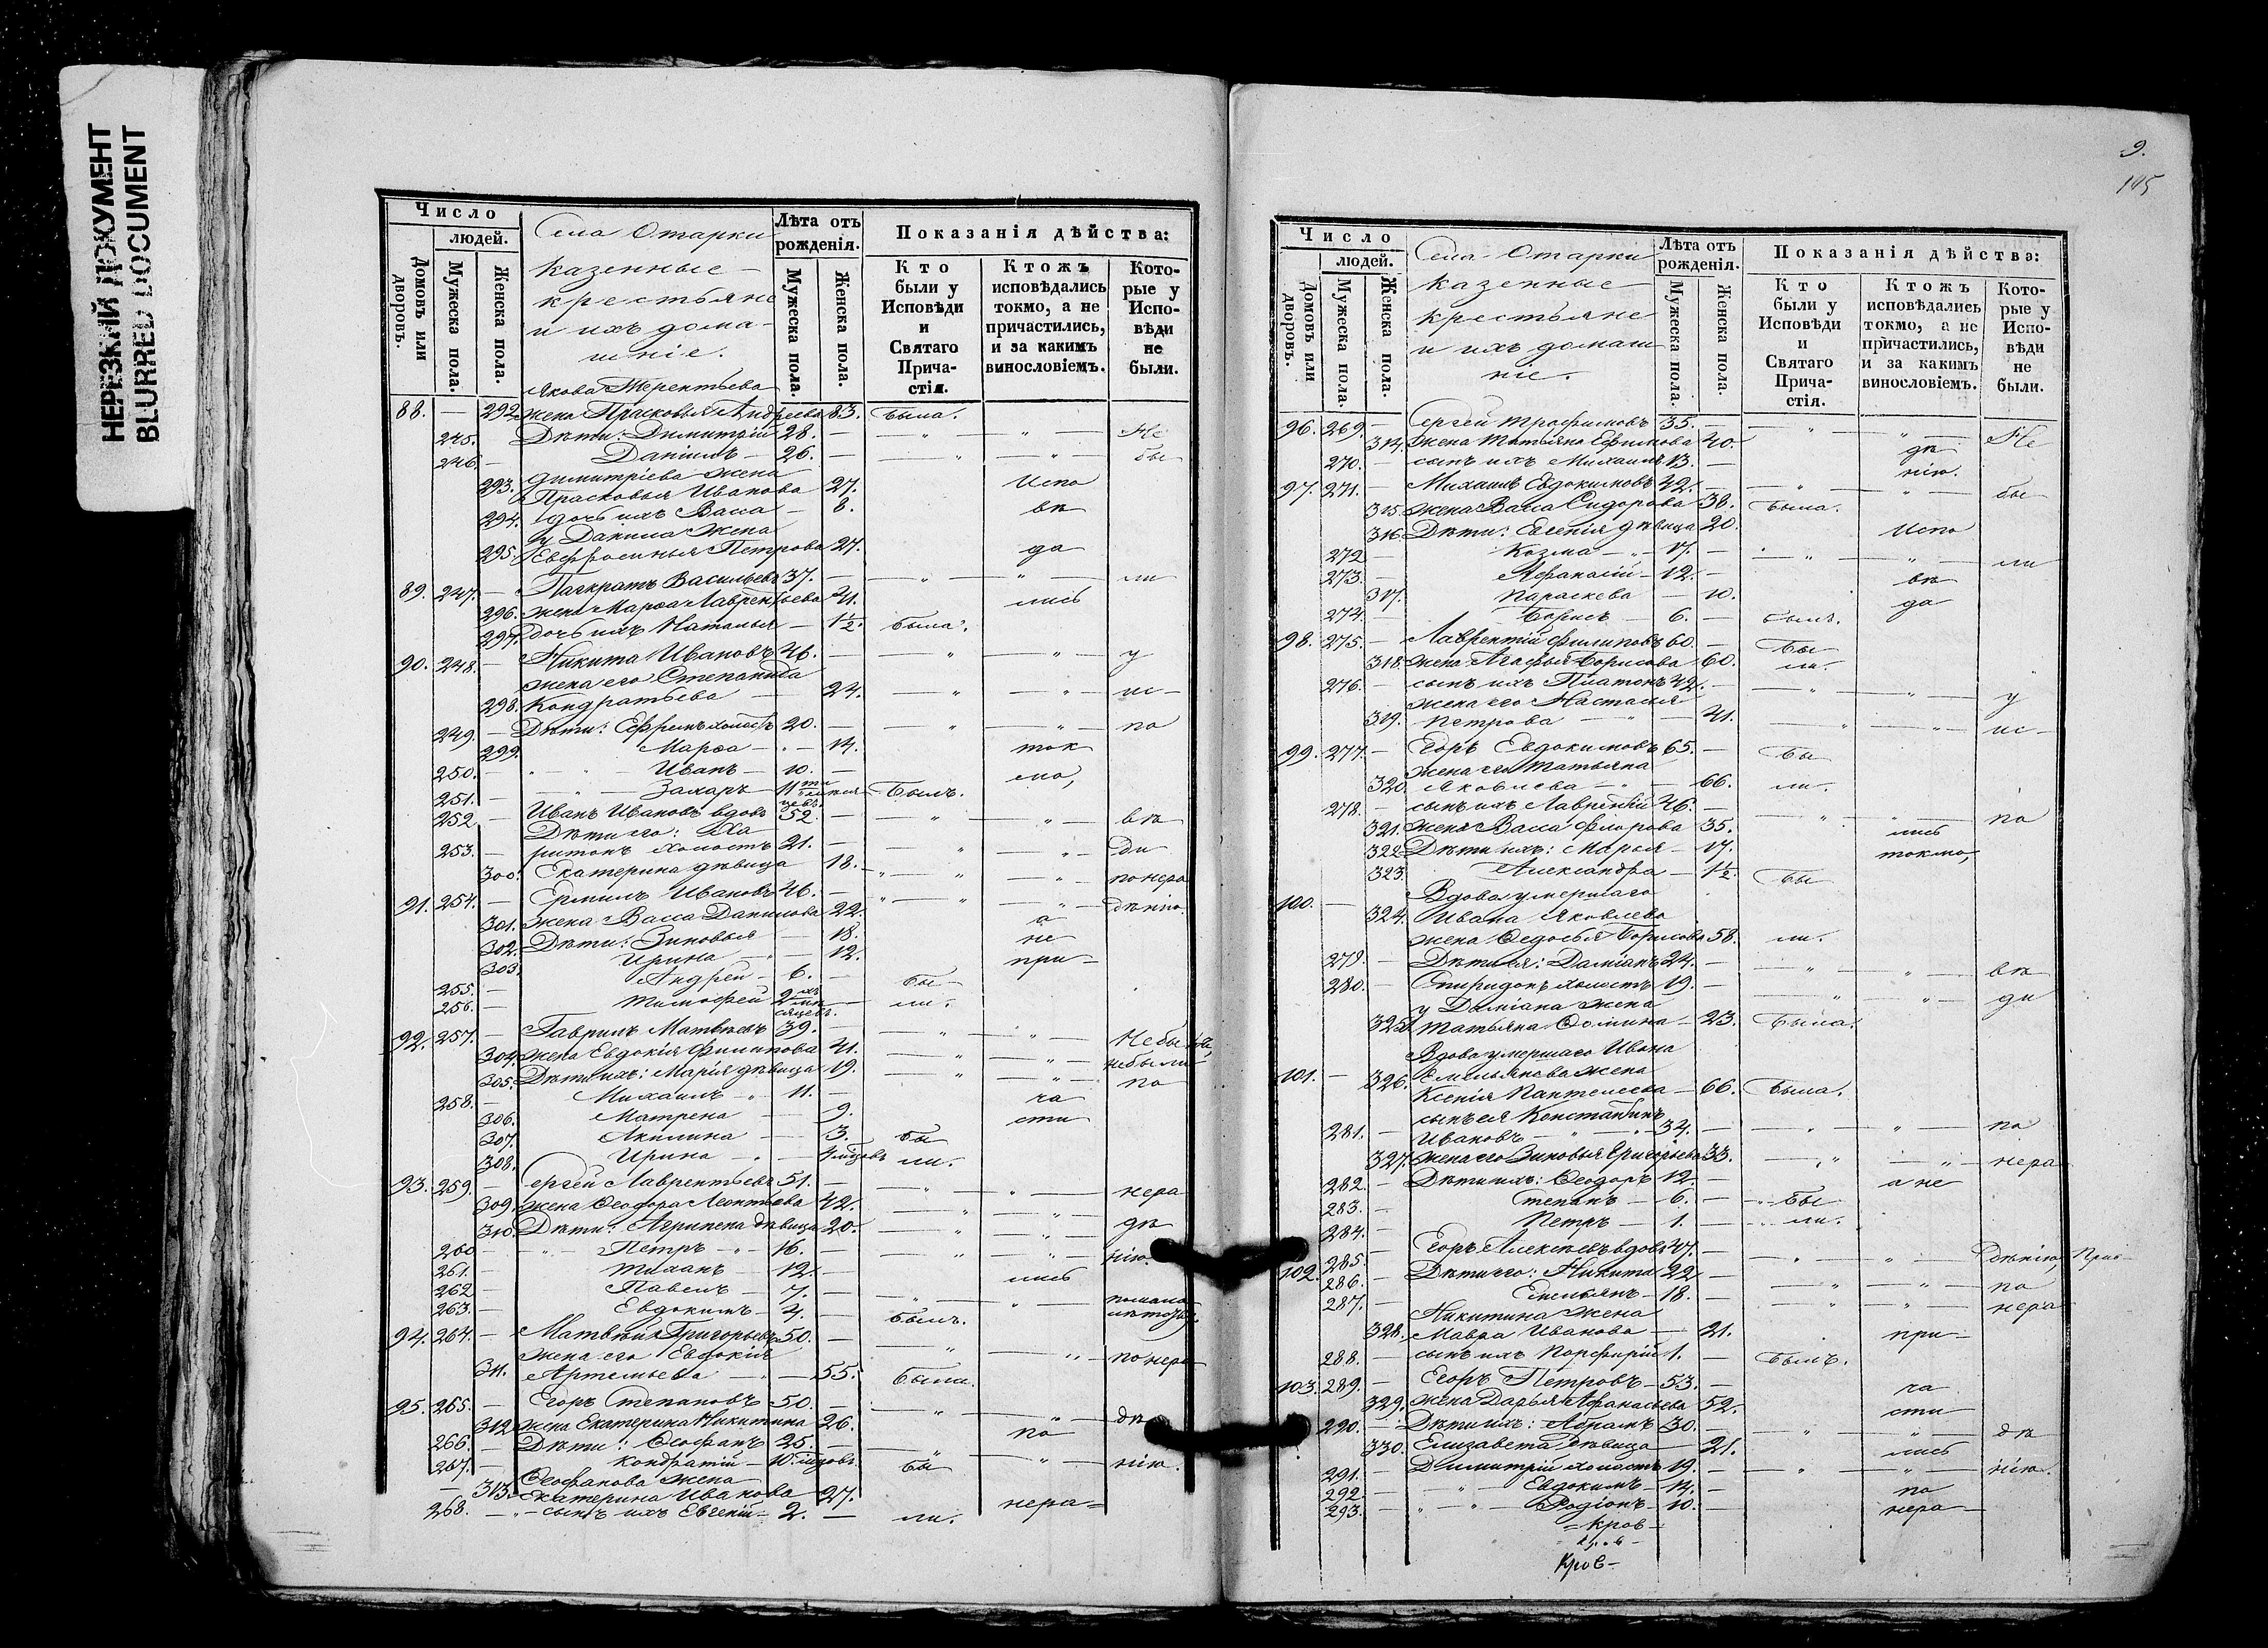 НЕРЕЗКИЙ ДОКУМЕНТ
BLURRED DOCUMENT
Число
людей.
Домовъ или дворовъ.
Мужеска пола.
Женска пола.
Села Отарки
казенные
крестьяне
и ихъ дома-
шніе.
Лѣта отъ рожденія.
Мужеска пола.
Женска пола.
Показанія дѣйства:
Кто были у Исповѣди и Святаго Прича-стія.
Ктожъ исповѣдались токмо, а не причастились, и за какимъ винословіемъ.
Кото-рые у Испо-вѣди не были.
Якова Терентьева
88. — 292. жена Прасковья Андреева 83. была.
245. Дѣти: Димитрій 28. — Не
246. — Даніилъ — 26. — бы
Димитріева жена
293. Прасковья Иванова 27. Испо
294. дочь ихъ Васса — 8. вѣ
у Данила жена
295. Евфросинья Петрова 27. да
89. 247. — Панкратъ Васильевъ 37. — ли
296. жена Марѳа Лаврентьева 41. лись
297. дочь ихъ Наталья — 1½. была.
90. 248. — Никита Ивановъ 46. — у
жена его Степанида
298. Кондратьева — 24. ис-
249. — Дѣти: Ефремъ холостъ 20. — по
299. Марѳа — 14. ток
250. — Иванъ — 10. —
251. — Захаръ — 11 былъ. мо,
252. — Иванъ Ивановъ вдовъ 52. — вѣ
Дѣти его: Ха
253. — ритонъ холостъ 21. — ди
300. Екатерина дѣвица 18. по нера
91. 254. — Ермилъ Ивановъ 46. — дѣнію.
301. жена Васса Данилова 22. а
302. Дѣти: Зиновья — 18. не
303. Ирина — 12. при-
255. — Андрей — 6. — бы-
256. — Тимофей 2хъ мѣсяцевъ. — ли.
92. 257. — Гаврилъ Матвѣевъ 39. — Не бы
304. жена Евдокія Филипова 41. не были
305. Дѣти ихъ: Марія дѣвица 19. по
258. — Михаилъ — 11. — ча
306. Матрена — 9. сти
307. Акилина — 3. бы
308. Ирина — ли.
93. 259. — Сергей Лаврентьевъ 51. — нера
309. жена Ѳеодора Леонтьева 42.
310. Дѣти: Агрипена дѣвица 20. дѣ
260. — Петръ — 16. — нію.
261. — Тиханъ — 12. — лись
262. — Павелъ — 7. —
263. — Евдокимъ — 4. — былъ.
94. 264. — Матвѣй Григорьевъ 50. —
жена его Евдокія
311. Артемьева — 55. была. по нера
95. 265. — Егоръ Степановъ 50. — дѣ
312. жена Екатерина Никитина 26. по
266. — Дѣти: Ѳеофанъ 25. —
267. — Кондратій — 10 бы нію.
Ѳеофанова жена
313. Екатерина Иванова 27. нера=
268. — сынъ ихъ Евгеній — 2. — ли.
9.
145
Число
людей.
Домовъ или дворовъ.
Мужеска пола.
Женска пола.
Села Отарки
казенные
крестьяне
и ихъ домаш
ніе.
Лѣта отъ рожденія.
Мужеска пола.
Женска пола.
Показанія дѣйства:
Кто были у Исповѣди и Святаго Прича-стія.
Ктожъ исповѣдались токмо, а не причастились, и за какимъ винословіемъ.
Кото-рые у Испо-вѣди не были.
96. 269. — Сергей Трофимовъ 35. — Не
314. жена Татьяна Ефимова 40. дѣ
270. — сынъ ихъ Михаилъ 13. — нію.
97. 271. — Михаилъ Евдокимовъ 42. — бы
315. жена Васса Сидорова 38. была.
316. Дѣти: Евгенія дѣвица 20. Испо
272. — Козма — 17. — ли
273. — Афанасій — 12. — вѣ
317. Параскева — 10. да
274. — Борисъ — 6. — былъ.
98. 275. — Лаврентій Филиповъ 60. — бы
318. жена Агафья Борисова 60. ли.
276. — сынъ ихъ Платонъ 42. — у
жена его Настасья
319. Петрова — 41. ис-
99. 277. — Егоръ Евдокимовъ 65. — бы
жена его Татьяна
320. Яковлева — 66. ли.
278. — сынъ ихъ Лаврентій 46. — по
321. жена Васса Флорова 35. лись
322. Дѣти ихъ: Марья — 17. токмо,
323. Александра — 1½. бы
100. — Вдова умершаго
324. Ивана Яковлева
жена Ѳедосья Борисова 58. ли.
279. — Дѣти ея: Даміанъ 24. — вѣ
280. — Спиридонъ холостъ 19. — ди
у Даміана жена
325. Татьяна Ѳомина — 23. была.
Вдова умершаго Ивана
101. — 326. Емельянова жена
Ксенія Пантелеева — 66. была.
сынъ ея Константинъ
281. — Ивановъ — 34. — по
327. жена его Зиновья Григорьева 33. нера
282. — Дѣти ихъ: Ѳеодоръ 12. — а не
283. — Степанъ — 6. — бы
284. — Петръ — 1. — ли.
102. 285. — Егоръ Алексѣевъ вдовъ 47. — дѣнію
286. — Дѣти его: Никита 22. — по
287. — Емельянъ — 18. — нера
Никитина жена
328. Мавра Иванова — 21. при-
288. — сынъ ихъ Порфирій 1. — былъ.
103. 289. — Егоръ Петровъ — 53. — ча
329. жена Дарья Афанасьева 52. сти
290. — Дѣти ихъ: Абрамъ 30. — дѣ
330. Елизавета дѣвица — 21. лись
291. — Димитрій холостъ 19. — нію.
292. — Евдокимъ — 14. — по
293. — Родіонъ — 10. — нера-
= Кров-
Кров-